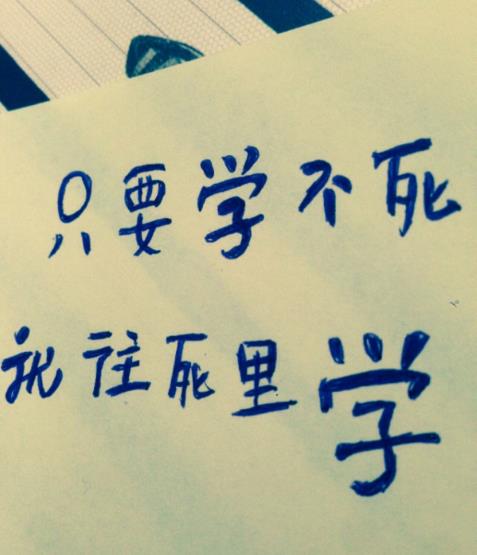 只要学不死
就往死里学